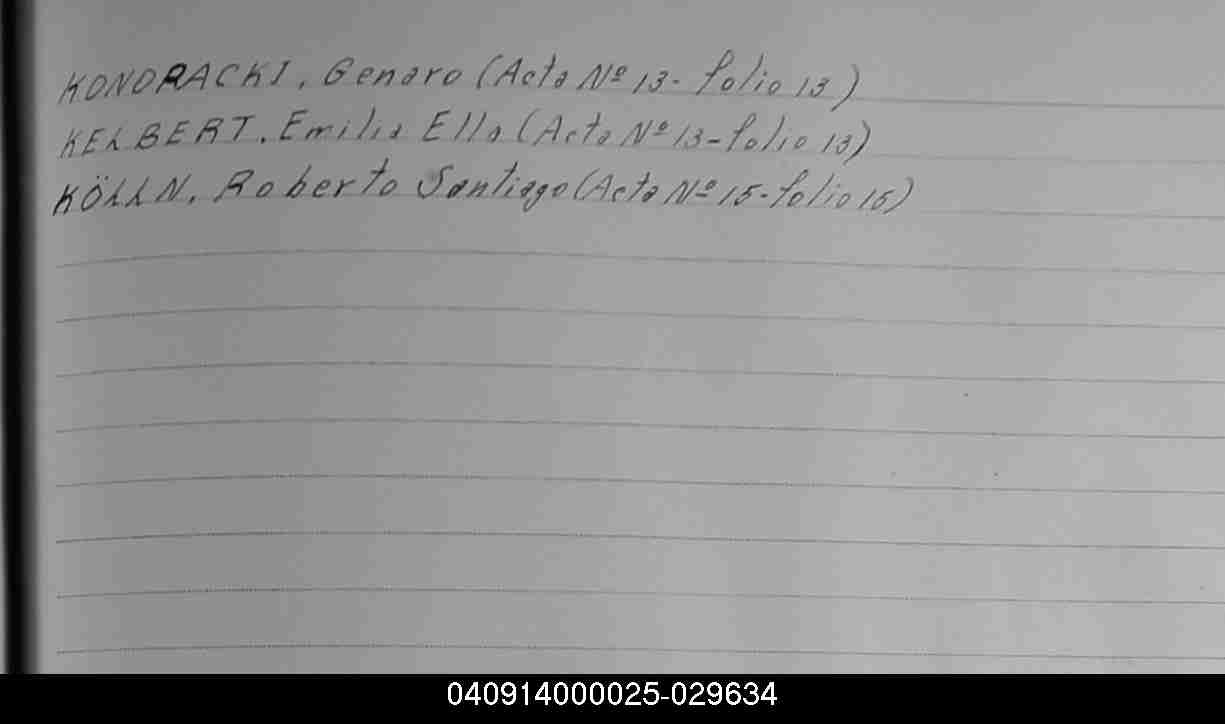 KONDRACKI, Genaro (Acta Nº 13- folio 13)
KELBERT, Emilia Ella (Acta Nº 13-folio 13)
KÖLLN, Roberto Santiago (Acta Nº 15-folio 15)
040914000025-029634